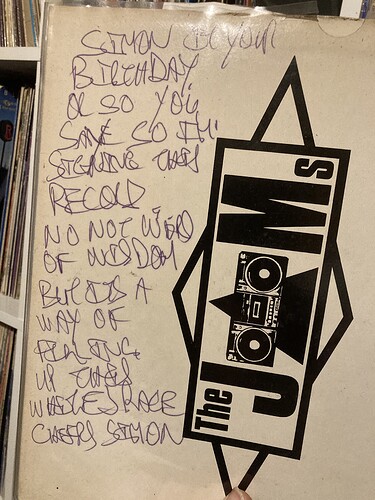 SIMON ITS YOUR
BIRTHDAY
OR SO YOU
SAYE SO I'M
SIGNING THIS
RECORD
NO NOT WORD
OF WISDOM
BUT ITS A
WAY OF
FILLING
UP THIS
WHITE SPACE
CHEERS SIMON
The JAMs